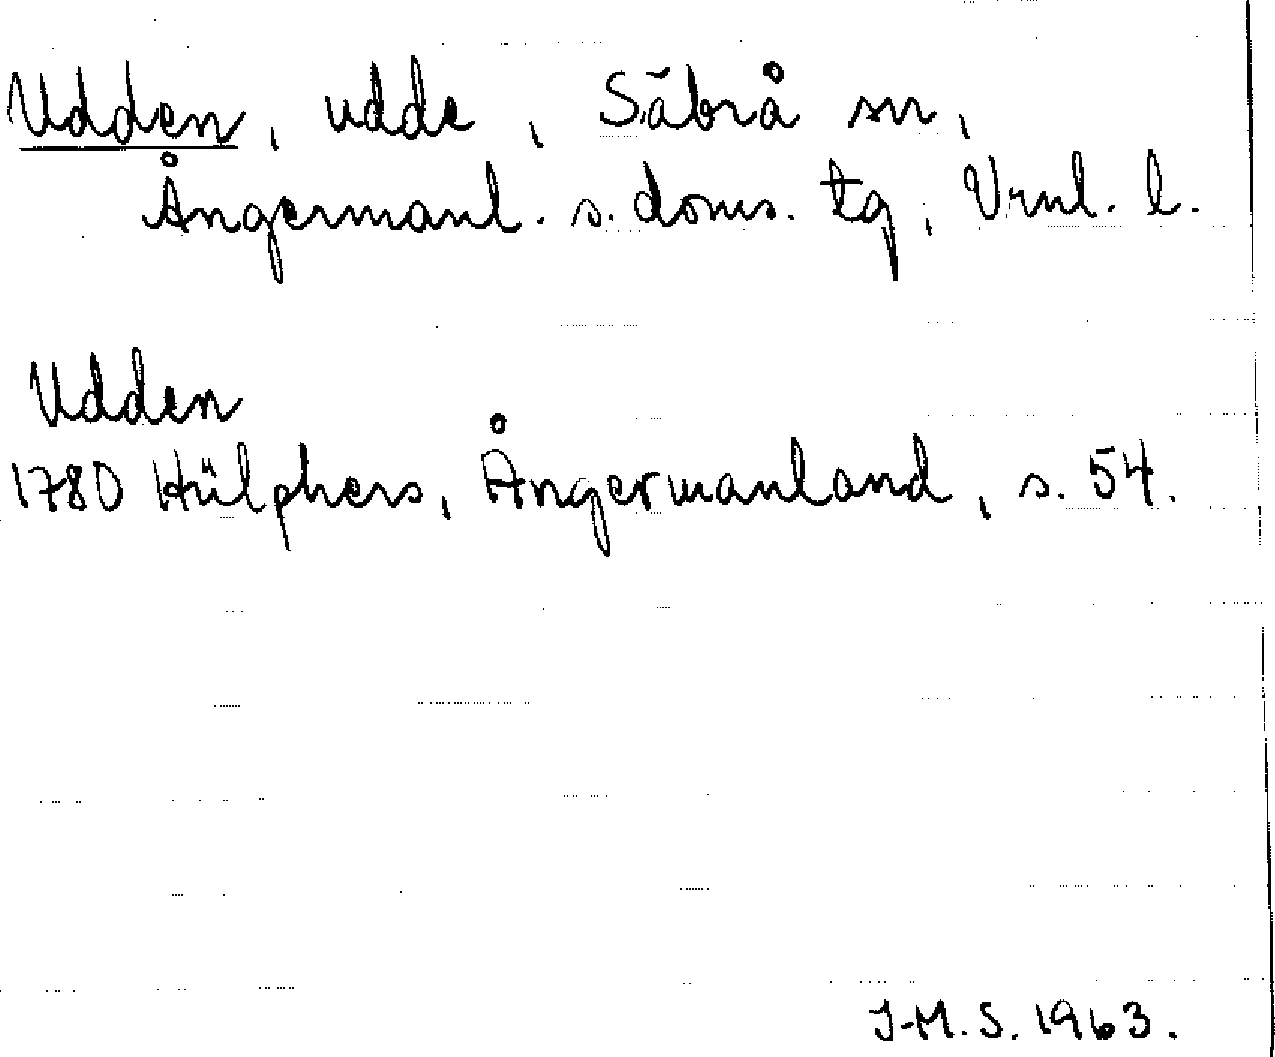 Udden, udde, Säbrå sn,
Ångermanl. s. doms. tg, Vrnl. l.
Udden
1780 Hülphers, Ångermanland, s. 54.
J-M.S. 1963.